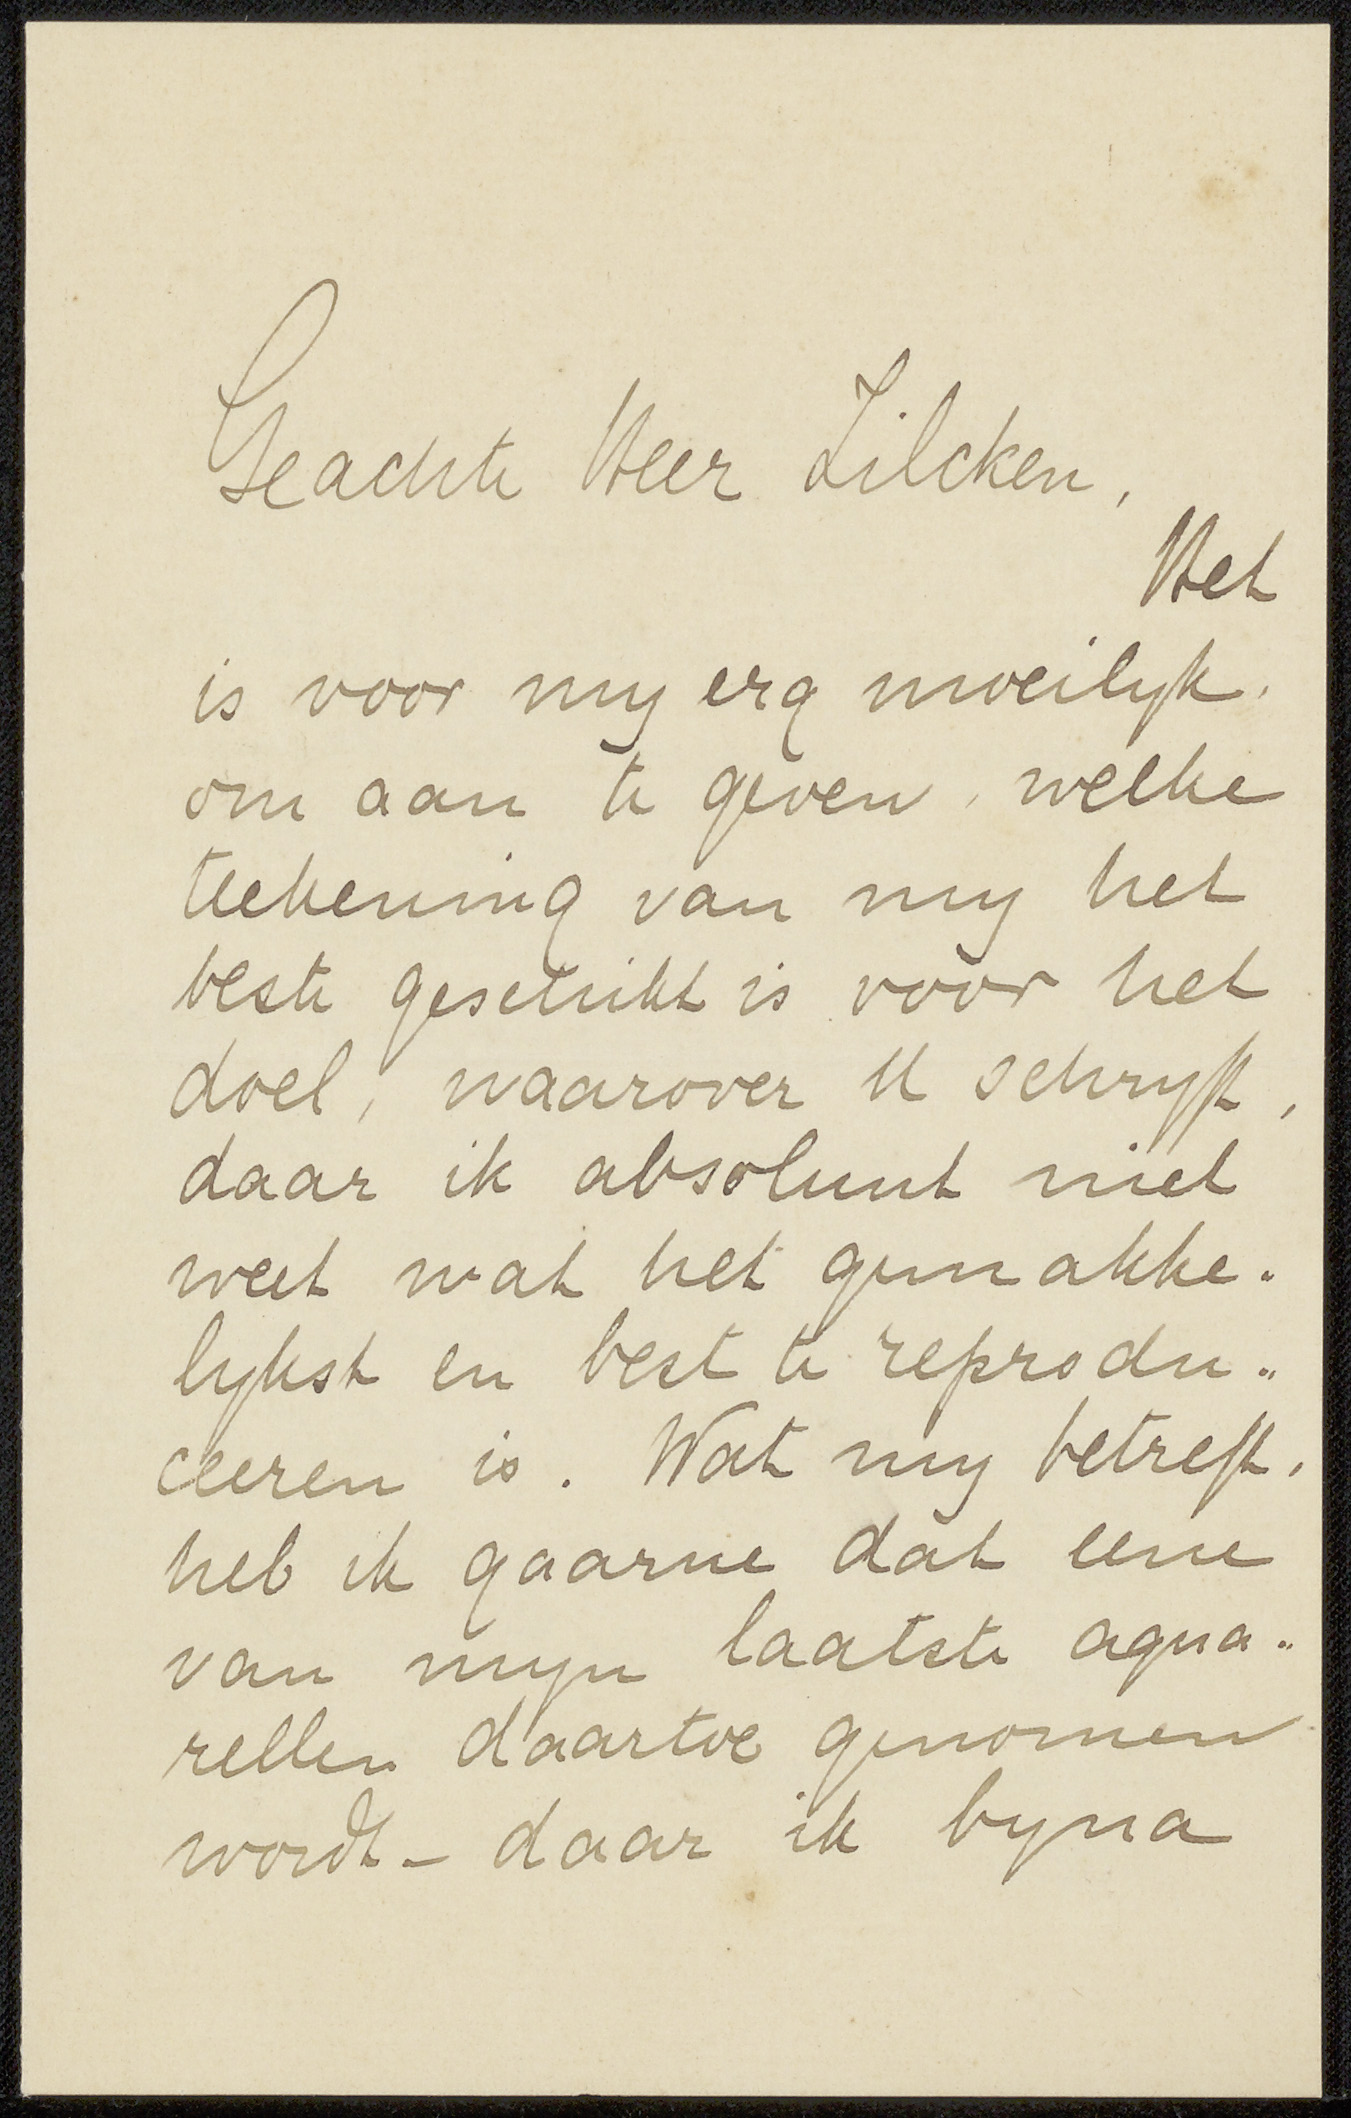 Geachte Heer Zilcken,
Het
is voor my erg moeilyk,
om aan te geven, welke
teekening van my het
beste geschikt is voor het
doel, waarover U schryft,
daar ik absoluut niet
weet wat het gemakke-
lykst en best te reprodu-
ceeren is. Wat my betreft,
heb ik gaarne dat eene
van myn laatste aqua-
rellen daartoe genomen
wordt - daar ik byna